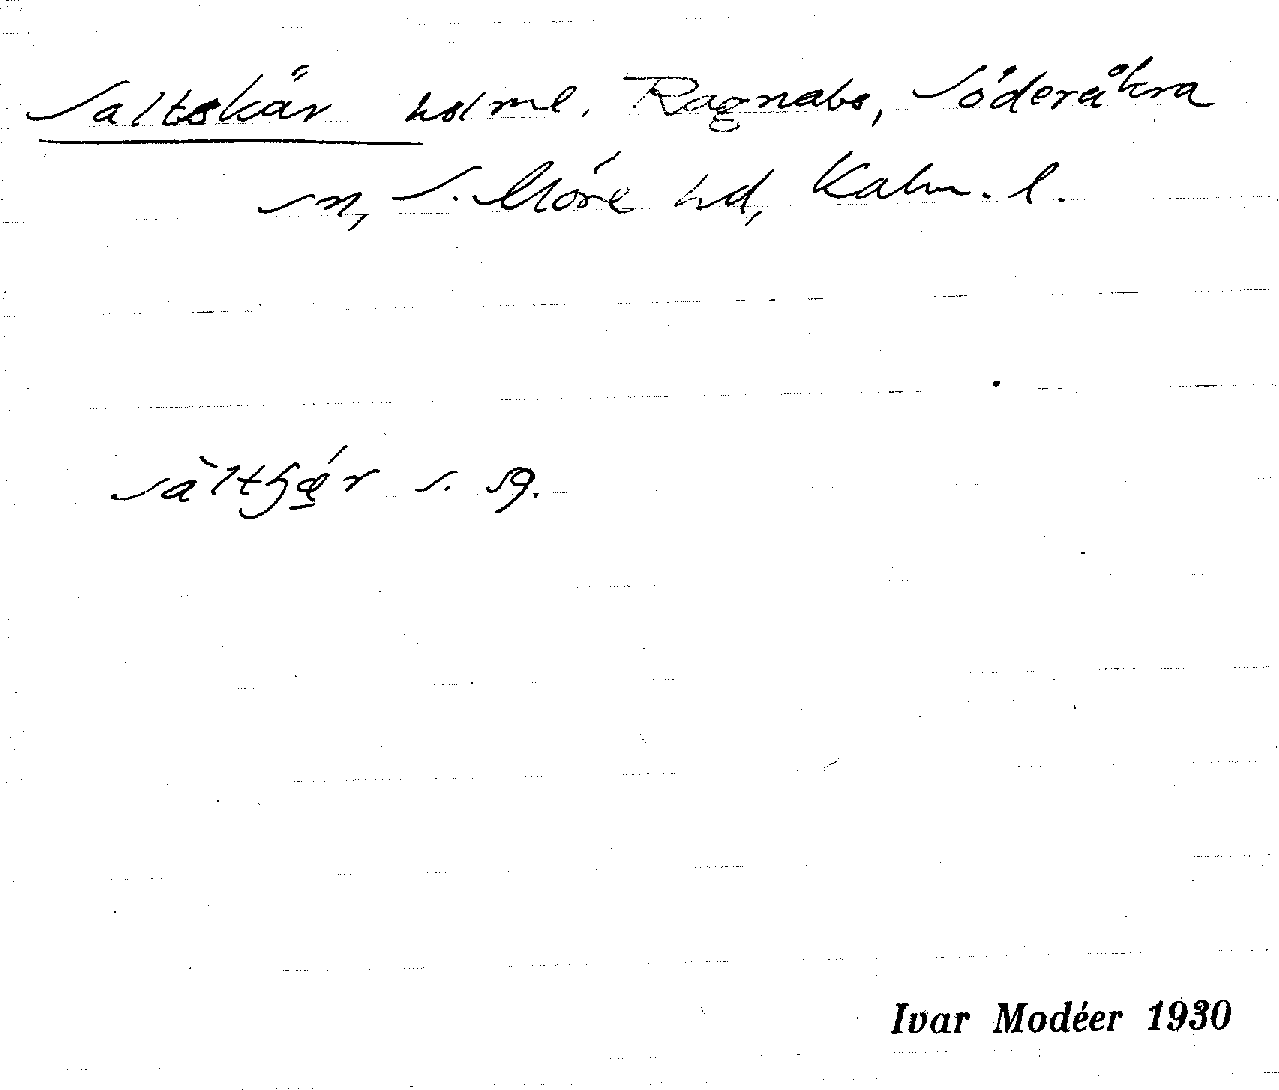 Saltskär holme, Ragnabo, Söderåkra
sn, S. Möre hd, Kalm. l.
s. sg.
Ivar Modéer 1930